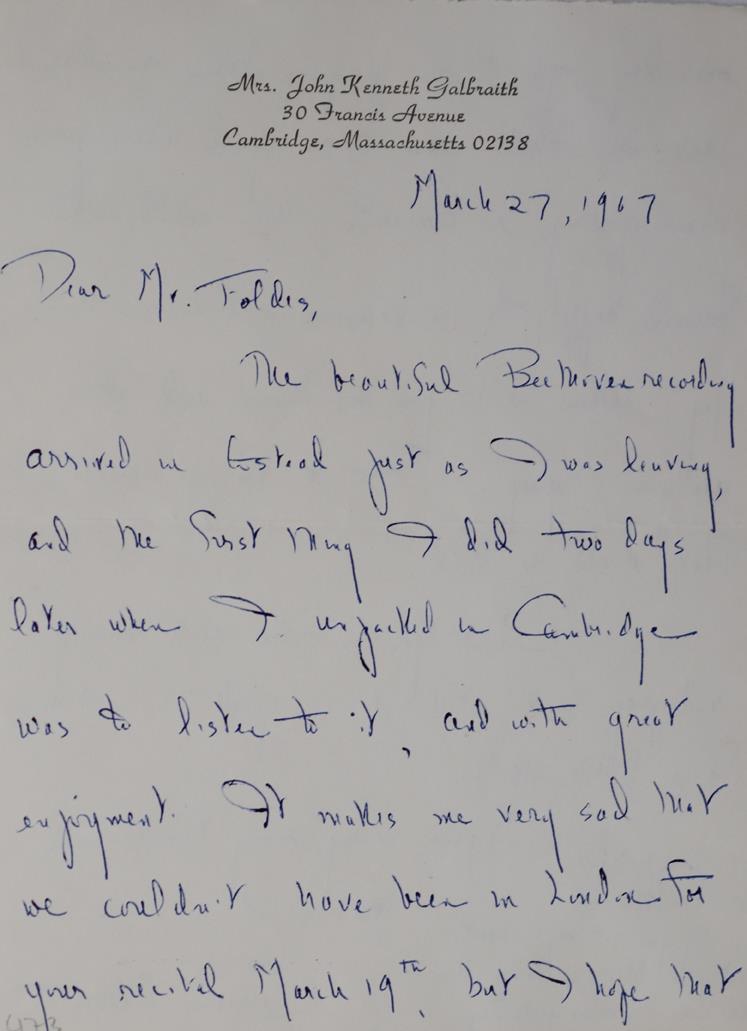 Mrs. John Kenneth Galbraith
30 Francis Avenue
Cambridge, Massachusetts 02138
March 27, 1967
Dear Mr. Foldes,
The beautiful Beethoven recording
arrived in Gstaad just as I was leaving,
and the first thing I did two days
later when I unpacked in Cambridge
was to listen to it, and with great
enjoyment. It makes me very sad that
we couldn't have been in London for
your recital March 19th, but I hope that